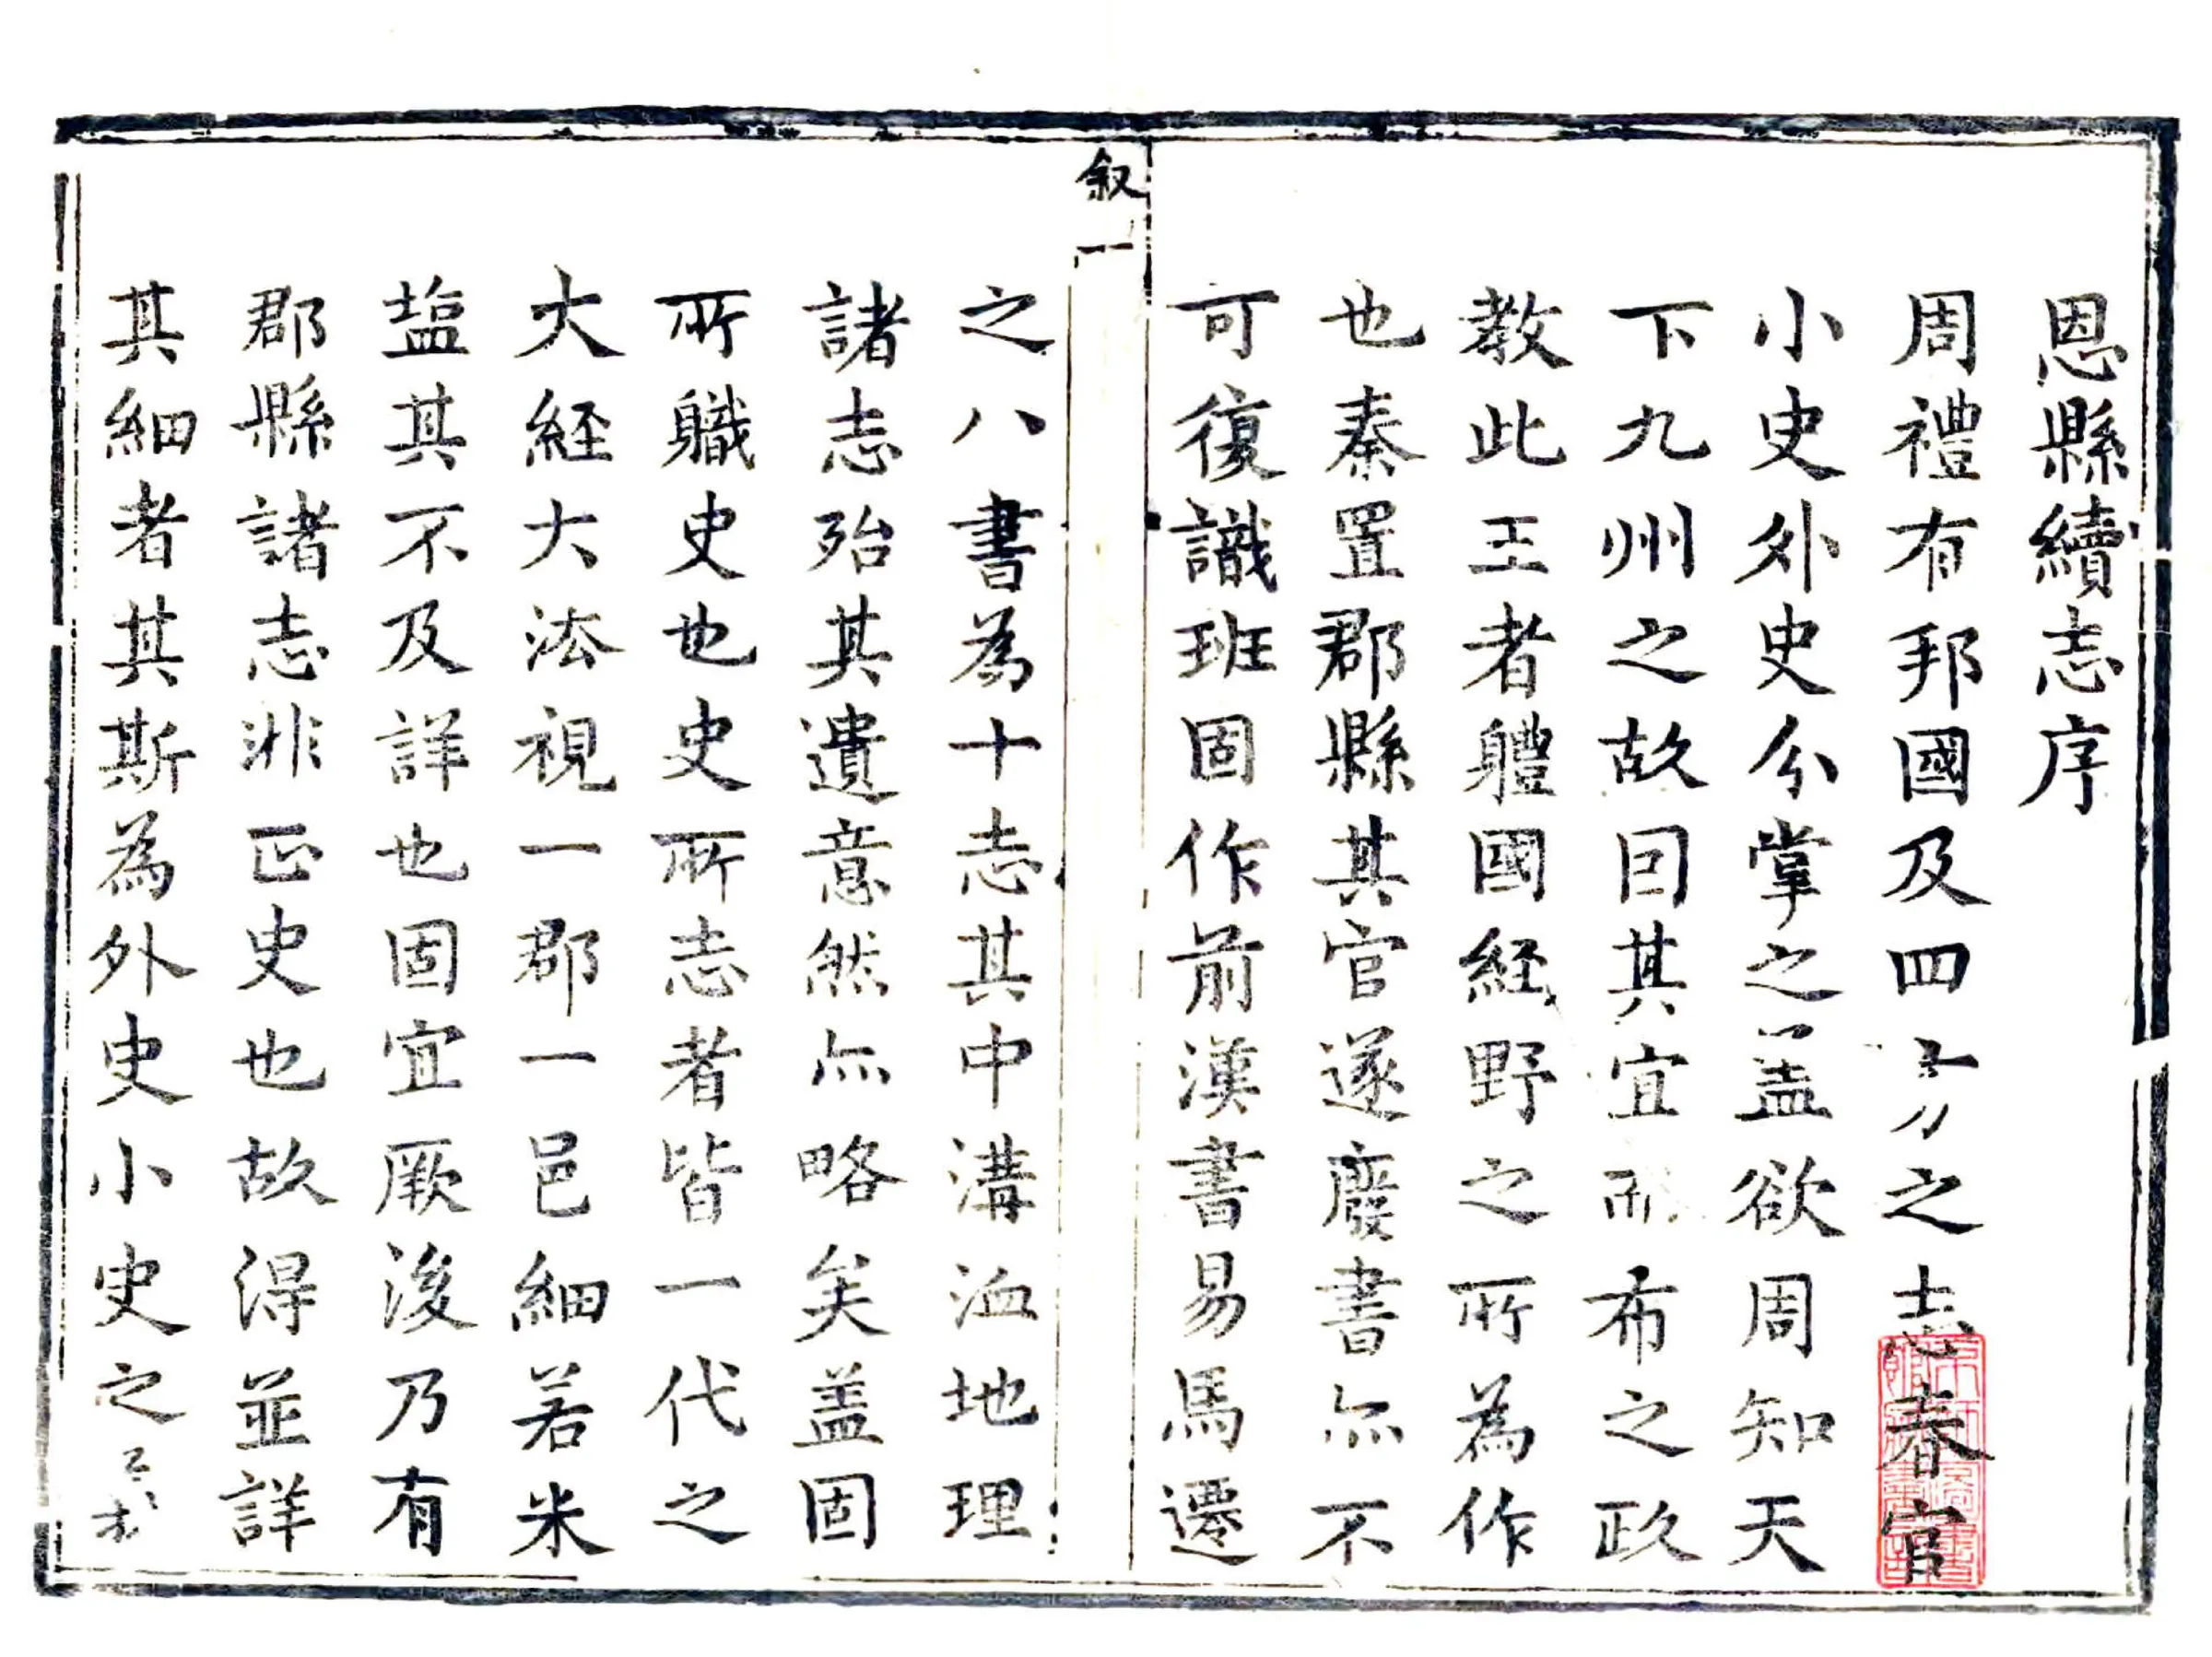 恩縣續志序
周禮有邦國及四方之志春官
小史外史分掌之盖欲周知天
下九州之故因其宜而布之政
教此王者體國経野之所為作
也秦置郡縣其官遂廢書亦不
可復識班固作前漢書易馬遷
叙一
之八書為十志其中溝洫地理
諸志殆其遺意然亦略矣盖固
所職史也史所志者皆一代之
大経大法視一郡一邑細若米
塩其不及詳也固宜厥後乃有
郡縣諸志非正史也故得並詳
其細者其斯為外史小史之